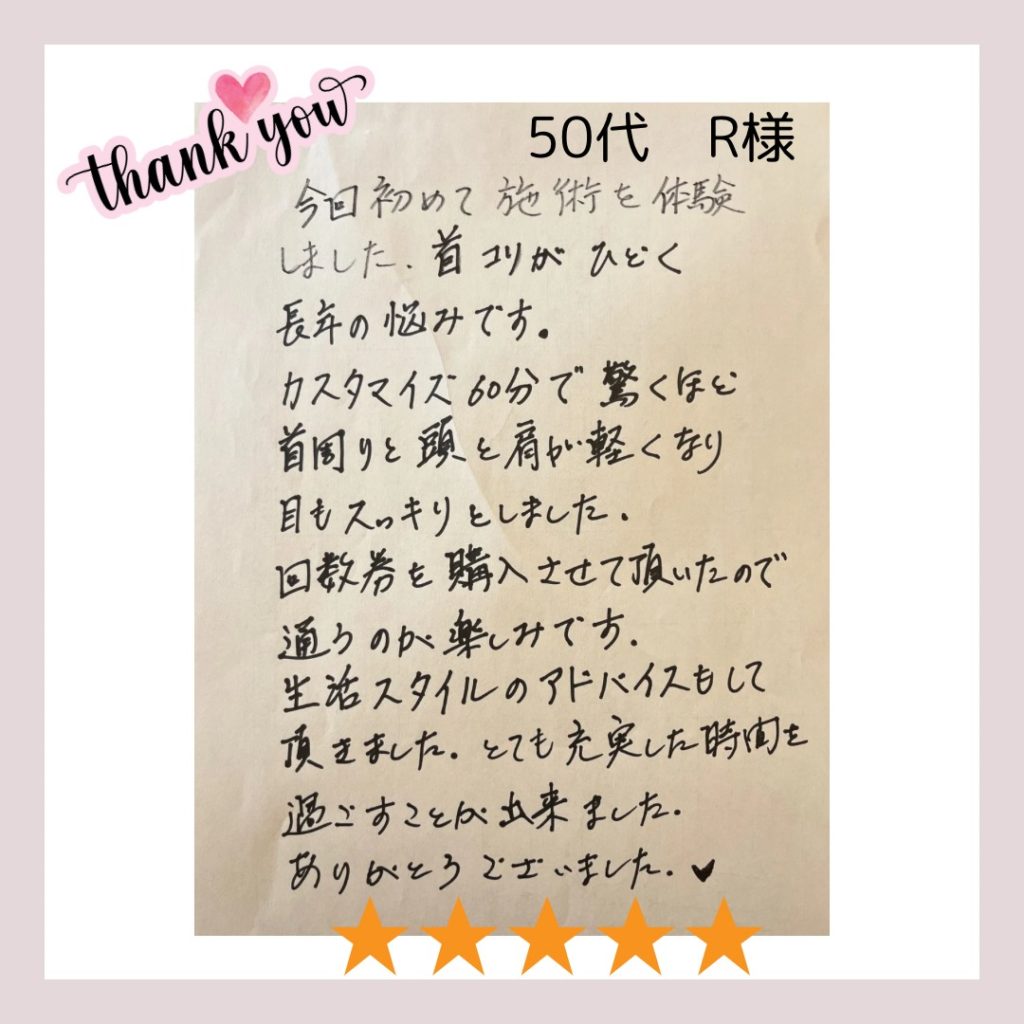 thank you
50代 R様
今回初めて施術を体験
しました. 首コリが ひどく
長年の悩みです。
カスタマイズ60分で驚くほど
首周りと頭と肩が軽くなり
目もスッキリとしました.
回数券を購入させて頂いたので
通うのが楽しみです.
生活スタイルのアドバイスもして
頂きました. とても充実した時間を
過ごすことが出来ました.
ありがとうございました. ♥